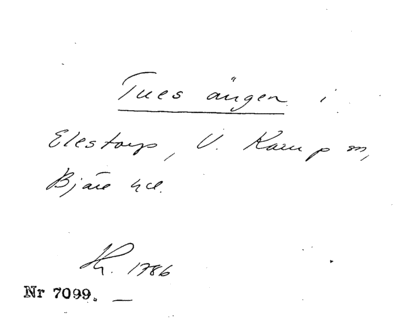 Tues ängen i
Elestorp, V. Karup sn,
Bjäre hd.
Kr. 1786
Nr 7099. —